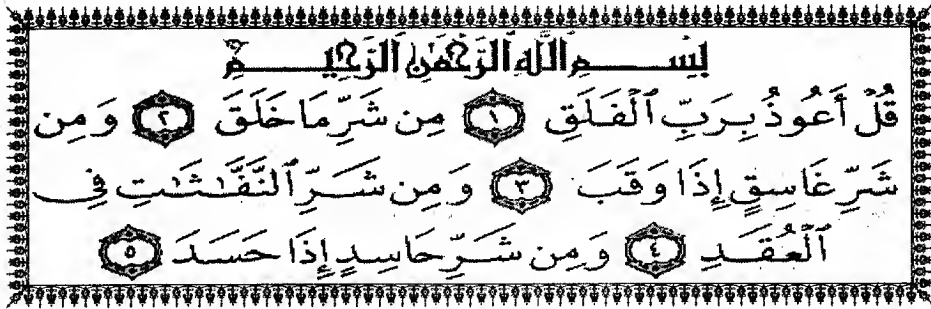 بِسْمِ اللَّهِ الرَّحْمَٰنِ الرَّحِيمِ
قُلْ أَعُوذُ بِرَبِّ ٱلْفَلَقِ ١ مِن شَرِّ مَا خَلَقَ ٢ وَمِن
شَرِّ غَاسِقٍ إِذَا وَقَبَ ٣ وَمِن شَرِّ ٱلنَّفَّٰثَٰتِ فِى
ٱلْعُقَدِ ٤ وَمِن شَرِّ حَاسِدٍ إِذَا حَسَدَ ٥